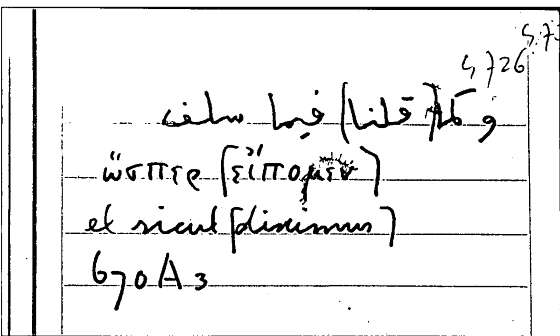 5,73
5,726
وكما (قلنا) فيما سلف
ὥσπερ [εἴπομεν]
et sicut [diximus]
670A3